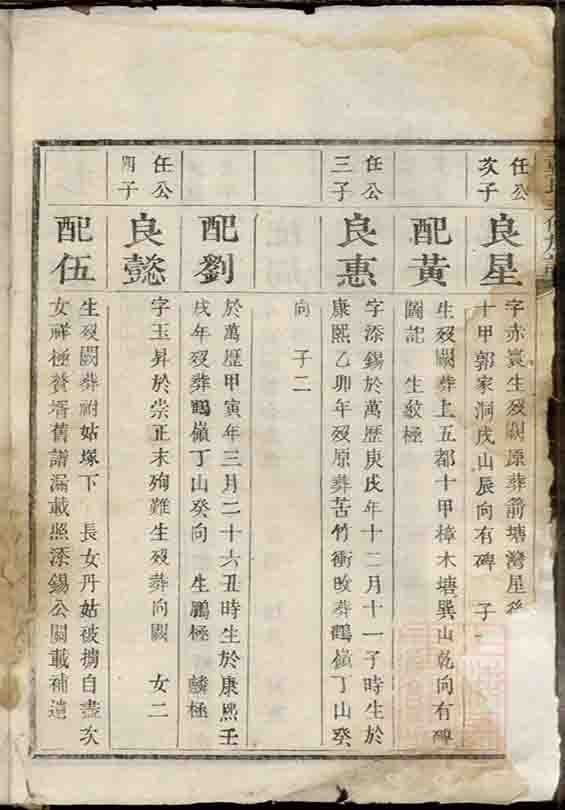 任公
次子
良星
字赤寰生歿闕原葬前塘灣星後
十甲郭家洞戌山辰向有碑 子一
配黃
生歿闕葬上五都十甲樟木塘巽山乾向有碑
圖記 生敘極
任公
三子
良惠
字添錫於萬歷庚戌年十二月十一子時生於
康熙乙卯年歿原葬苦竹衝改葬鶴嶺丁山癸
向 子二
配劉
於萬歷甲寅年三月二十六丑時生於康熙壬
戌年歿葬鶴嶺丁山癸向 生鵬極 麟極
任公
四子
良懿
字玉昇於崇正末殉難生歿葬向闕 女二
配伍
生歿闕葬祔姑塚下 長女丹姑被擄自盡次
女祥極贅壻舊譜漏載照添錫公闗載補遺